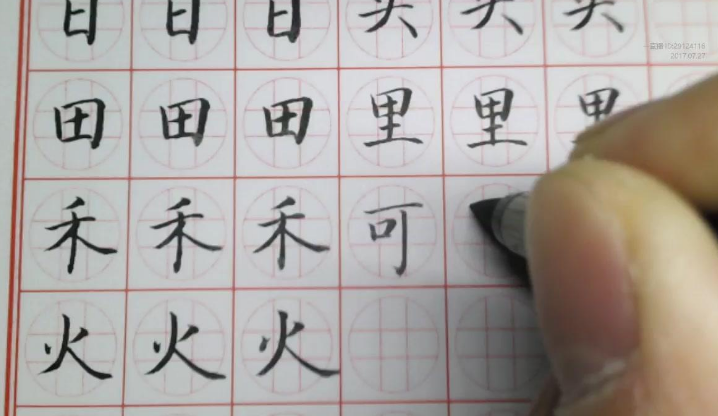 日 日 日
田 田 田 里 里 里
禾 禾 禾 可
火 火 火
2017.07.27